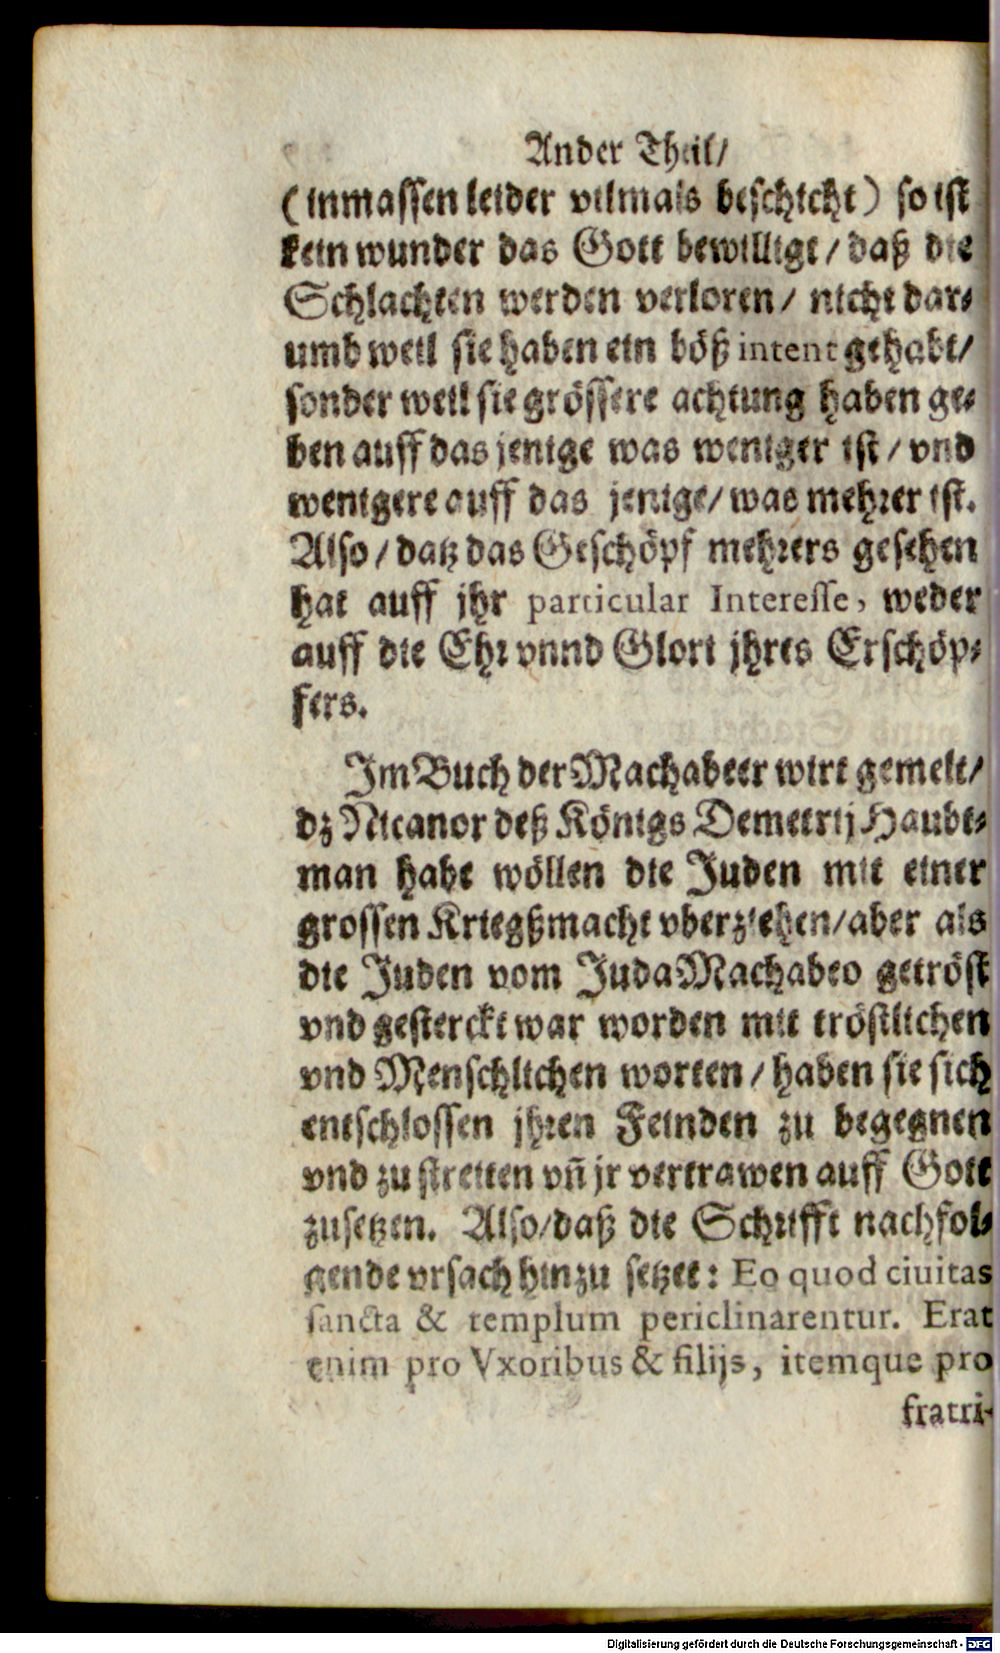 Ander Theil/
(inmassen leider vilmals beschicht) so ist
kein wunder das Gott bewilligt/ daß die
Schlachten werden verloren/ nicht dar-
umb weil sie haben ein böß intent gehabt/
sonder weil sie grössere achtung haben ge-
ben auff das jenige was weniger ist/ vnd
wenigere auff das jenige/ was mehrer ist.
Also/ datz das Geschöpf mehrers gesehen
hat auff jhr particular Interesse, weder
auff die Ehr vnnd Glori jhres Erschöp-
fers.
Im Buch der Machabeer wirt gemelt/
dz Nicanor deß Königs Demetrij Haubt-
man habe wöllen die Juden mit einer
grossen Kriegßmacht vberziehen/ aber als
die Juden vom Juda Machabeo getröst
vnd gesterckt war worden mit tröstlichen
vnd Menschlichen worten/ haben sie sich
entschlossen jhren Feinden zu begegnen
vnd zu streitten vñ jr vertrawen auff Gott
zusetzen. Also/ daß die Schrifft nachfol-
gende vrsach hinzu setzet: Eo quod ciuitas
sancta & templum periclinarentur. Erat
enim pro Vxoribus & filijs, itemque pro
fratri-
Digitalisierung gefördert durch die Deutsche Forschungsgemeinschaft - DFG